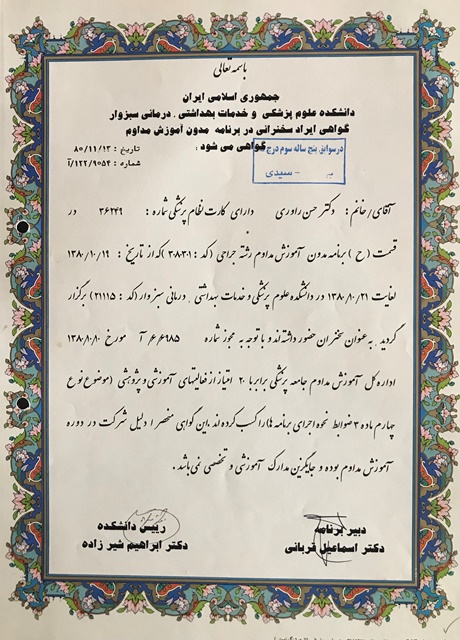 باسمه تعالی
جمهوری اسلامی ایران
دانشکده علوم پزشکی و خدمات بهداشتی ـ درمانی سبزوار
گواهی ایراد سخنرانی در برنامه مدون آموزش مداوم
گواهی می شود :
تاریخ : ۸۰/۱۱/۱۳
شماره : ۱۲۲/۹۰۵۴/آ
در سوابق پنج ساله سوم درج
سیدی
آقای/خانم : دکتر حسن راوری دارای کارت نظام پزشکی شماره : ۳۶۲۴۹ در
قسمت (ح ) برنامه مدون آموزش مداوم رشته جراحی (کد : ۳۰۸۳۰۱ )که از تاریخ : ۱۳۸۰/۱۰/۱۹
لغایت ۱۳۸۰/۱۰/۲۱ در دانشکده علوم پزشکی و خدمات بهداشتی ـ درمانی سبزوار (کد : ۲۱۱۱۵) برگزار
گردید . به عنوان سخنران حضور داشته اند و با توجه به مجوز شماره ۶۰۶۹۸۵/آ مورخ ۱۳۸۰/۱۰/۱۰
اداره کل آموزش مداوم جامعه پزشکی برابر با ۲۰ امتیاز از فعالیتهای آموزشی و پژوهشی (موضوع نوع
چهارم ماده ۳ ضوابط نحوه اجرای برنامه ها) را کسب کرده اند .این گواهی منحصراً دلیل شرکت در دوره
آموزش مداوم بوده و جایگزین مدارک آموزشی و تخصصی نمی باشد .
دبیر برنامه
دکتر اسماعیل قربانی
رییس دانشکده
دکتر ابراهیم شیر زاده